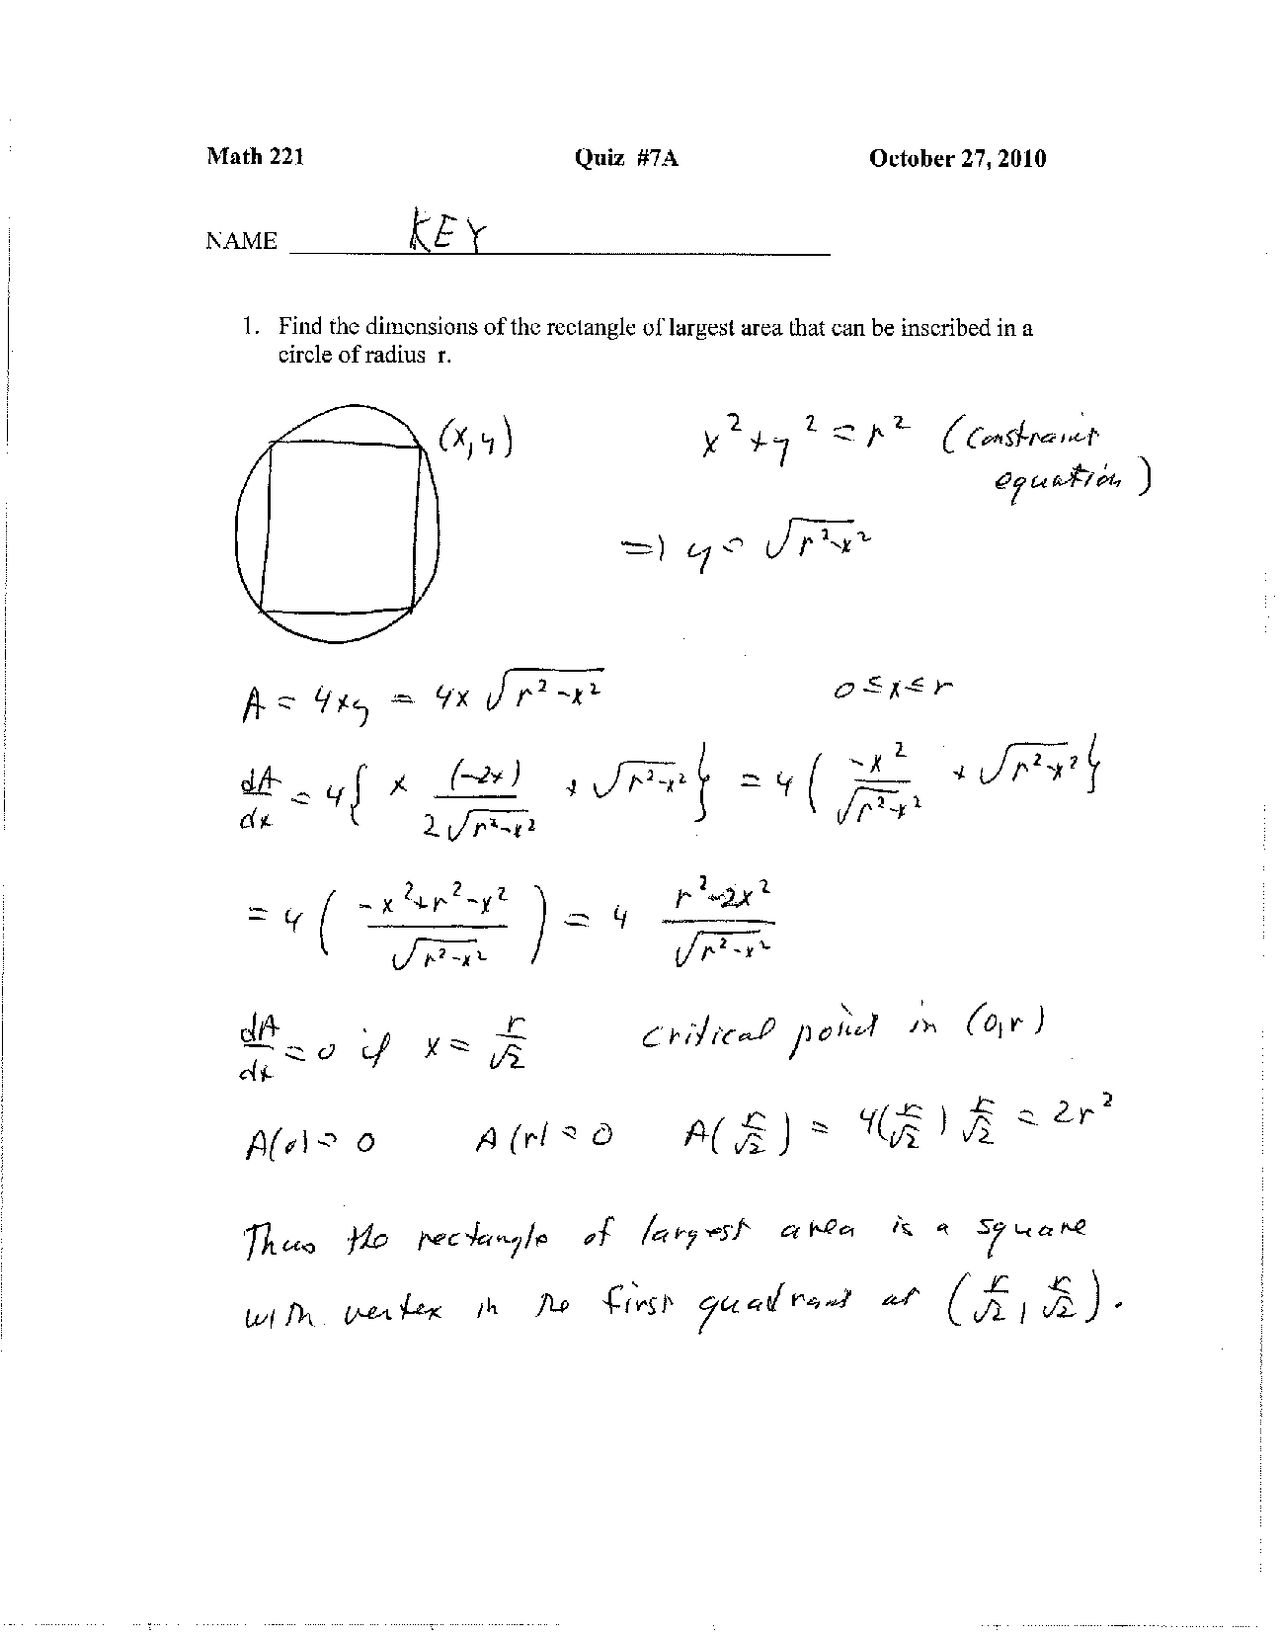 Math 221 Quiz #7A October 27, 2010
NAME KEY
1. Find the dimensions of the rectangle of largest area that can be inscribed in a
circle of radius r.
(x,y) x² + y² = r² (constraint
equation)
=> y = √(r²-x²)
A = 4xy = 4x √(r²-x²) 0 ≤ x ≤ r
dA/dx = 4{ x (-2x)/(2√(r²-x²)) + √(r²-x²) } = 4( -x²/√(r²-x²) + √(r²-x²) }
= 4 ( (-x²+r²-x²)/√(r²-x²) ) = 4 (r²-2x²)/√(r²-x²)
dA/dx = 0 if x = r/√2 critical point in (0,r)
A(0) = 0 A(r) = 0 A(r/√2) = 4(r/√2) r/√2 = 2r²
Thus the rectangle of largest area is a square
with vertex in the first quadrant at (r/√2, r/√2).